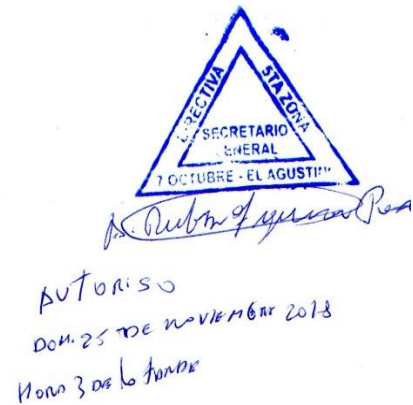 DIRECTIVA 5TA ZONA
SECRETARIO
GENERAL
7 OCTUBRE - EL AGUSTIN
Ruben
AUTORISO
DOM. 25 DE NOVIEMBRE 2018
HORA 3 DE LA TARDE